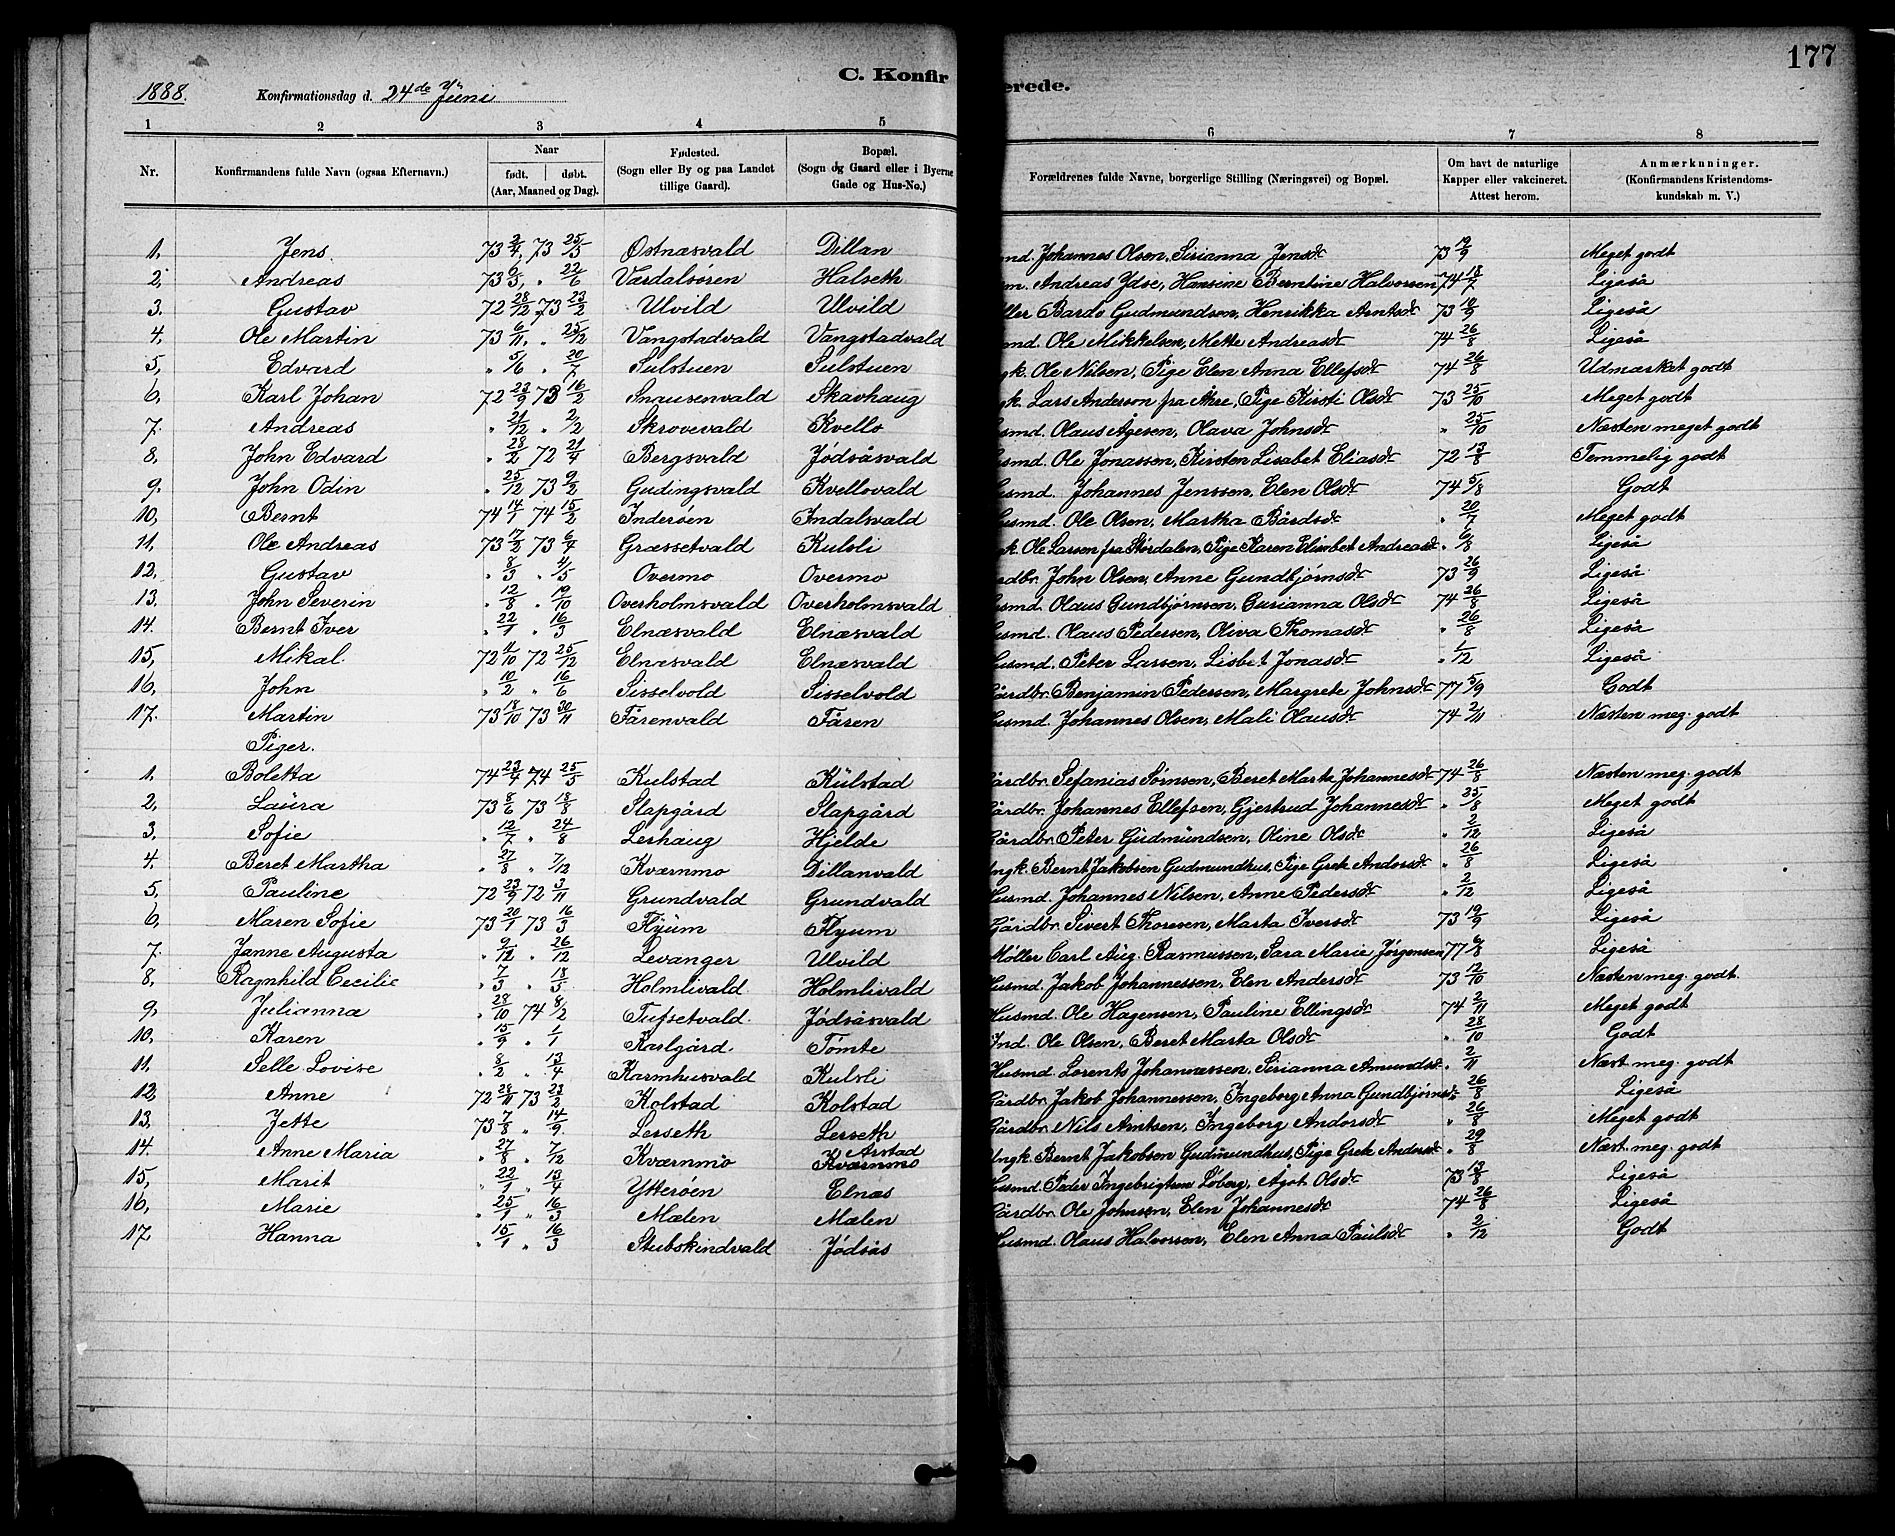 177
C. Konfir
erede.
1888. Konfirmationsdag d. 24de Juni
1 2 3 4 5 6 7 8
Nr. Konfirmandens fulde Navn (ogsaa Efternavn.) Naar født. døbt. (Aar, Maaned og Dag). Fødested. (Sogn eller By og paa Landet tillige Gaard). Bopæl. (Sogn og Gaard eller i Byerne Gade og Hus-No.) Forældrenes fulde Navne, borgerlige Stilling (Næringsvei) og Bopæl. Om havt de naturlige Kapper eller vakcineret. Attest herom. Anmærkninger. (Konfirmandens Kristendomskundskab m. V.)
1. Jens 73 2/4, 73 25/5 Østnæsvald Dillan md. Johannes Olsen, Sirianna Jensdr 73 19/9 Meget godt
2, Andreas 73 6/3, " 22/6 Værdalsøren Halseth m. Andreas Ydse, Hansine Berntine Halvorsen 74 18/7 Ligeså
3. Gustav 72 28/12 73 23/2 Ulvild Ulvild ller Bardo Gudmundsen, Henrikka Arntsdr 73 19/9 Ligeså
4. Ole Martin 73 6/11, " 25/12 Vangstadvald Vangstadvald md. Ole Mikkelsen, Mette Andreasdr 74 26/8 Ligeså
5, Edvard " 5/6 " 20/7 Sulstuen Sulstuen gk. Ole Nilsen, Pige Elen Anna Ellefsdr 74 26/8 Udmærket godt
6, Karl Johan 72 23/9 73 16/2 Snausenvald Skavhaug gk. Lars Anderson fra Åkre, Pige Kirsti Olsdr 73 25/10 Meget godt
7. Andreas " 21/12 " 2/2 Skrovevald Kvello usmd. Olaus Ågesen, Olava Johnsdr " 25/10 Næsten meget godt
8, John Edvard " 28/2 72 21/4 Bergsvald Jødsåsvald usmd. Ole Jonassen, Kirsten Lisabet Eliasdr 72 13/8 Temmelig godt
9. John Odin " 25/12 73 9/2 Gudingsvald Kvellovald usmd. Johannes Jenssen, Elen Olsdr 74 5/8 Godt
10, Bernt 74 14/1 74 15/2 Inderøen Indalsvald usmd. Ole Olsen, Martha Bårdsdr " 20/7 Meget godt
11, Ole Andreas 73 17/2 73 6/4 Græssetvald Kulsli gk. Ole Larsen fra Størdalen, Pige Karen Elisabet Andreasdr " 6/8 Ligeså
12. Gustav " 8/3 " 4/5 Overmo Overmo rdbr. John Olsen, Anne Gundbjørnsdr 73 26/9 Ligeså
13. John Severin " 12/8 " 19/10 Overholmsvald Overholmsvald usmd. Olaus Gundbjørnsen, Gurianna Olsdr 74 26/8 Ligeså
14. Bernt Iver " 22/1 " 16/3 Elnæsvald Elnæsvald usmd. Olaus Pedersen, Oliva Thomasdr " 26/8 Ligeså
15, Mikal. 72 1/10 72 25/12 Elnæsvald Elnæsvald usmd. Peter Larsen, Lisbet Jonasdr " 1/12 Ligeså
16, John " 10/2 " 16/6 Sisselvold Sisselvold årdbr. Benjamin Pedersen, Margrete Johnsdr 77 5/9 Godt
17. Martin 73 18/10 73 30/11 Fårenvald Fåren usmd. Johannes Olsen, Mali Olausdr 74 2/11 Næsten meg. godt
Piger.
1. Boletta 74 23/4 74 25/5 Kulstad Kulstad årdbr. Sefanias Sørnsen, Beret Marta Johannesdr 74 26/8 Næsten meg. godt
2, Laura 73 8/6 73 18/8 Slapgård Slapgård årdbr. Johannes Ellefsen, Gjertrud Johannesdr " 25/8 Meget godt
3. Sofie " 12/7 " 24/8 Lerhaug Hjelde Gårdbr. Peter Gudmundsen, Oline Olsdr " 2/12 Ligeså
4. Beret Martha " 27/8 " 7/12 Kværnmo Dillanvald Ungk. Bernt Jakobsen Gudmundhus, Pige Grete Andersdr " 26/8 Ligeså
5. Pauline 72 23/9 72 3/11 Grundvald Grundvald Husmd. Johannes Nilsen, Anne Pedersdr " 2/12 Ligeså
6, Maren Sofie 73 20/1 73 16/3 Flyum Flyum Gårdbr. Sivert Thoresen, Marta Iversdr 73 19/9 Ligeså
7. Janne Augusta " 9/12 " 26/12 Levanger Ulvild Møller Carl Aug. Rasmussen, Sara Marie Jørgensen 77 6/8 Ligeså
8, Ragnhild Cecilie " 7/3 " 18/5 Holmlivald Holmlivald Husmd. Jakob Johannessen, Elen Andersdr 73 12/10 Næsten meg. godt.
9, Julianna " 28/10 74 8/2 Tufsetvald. Jødsåsvald Husmd. Ole Hagensen, Pauline Ellingsdr 74 2/11 Meget godt
10, Karen " 15/9 " 1/1 Karlgård. Tømte Ind. Ole Olsen, Beret Marta Olsdr " 28/10 Godt
11. Selle Lovise " 8/2 " 13/4 Karmhusvald Kulsli Husmd. Lorents Johannessen, Sirianna Amundsd. " 2/11 Næst. meg. godt
12, Anne 72 28/11 73 23/2 Kolstad Kolstad Gårdbr. Jakob Johannessen, Ingeborg Anna Gundbjørnsdr " 26/8 Ligeså
13. Jette 73 7/8 " 14/9 Lerseth Lerseth Gårdbr. Nils Arntsen, Ingeborg Andorsdr " 26/8 Meget godt
14. Anne Maria " 27/8 " 7/12 Kværnmo Arstad Kværnmo Ungk. Bernt Jakobsen Gudmundhus, Pige Grete Andersdr " 29/8 Næst. meg. godt
15, Marit " 22/1 " 13/4 Ytterøen Elnæs Husmd. Peder Ingebrigtsen Løberg, Agot Olsdr 73 13/8 Ligeså
16, Marie " 25/1 " 16/3 Mælen Mælen Gårdbr. Ole Johnsen, Elen Johannesdr 74 26/8 Ligeså
17. Hanna " 15/1 " 16/3 Stubskindvald Jødsås Husmd. Olaus Halvorsen, Elen Anna Paulsdr " 2/12 Godt